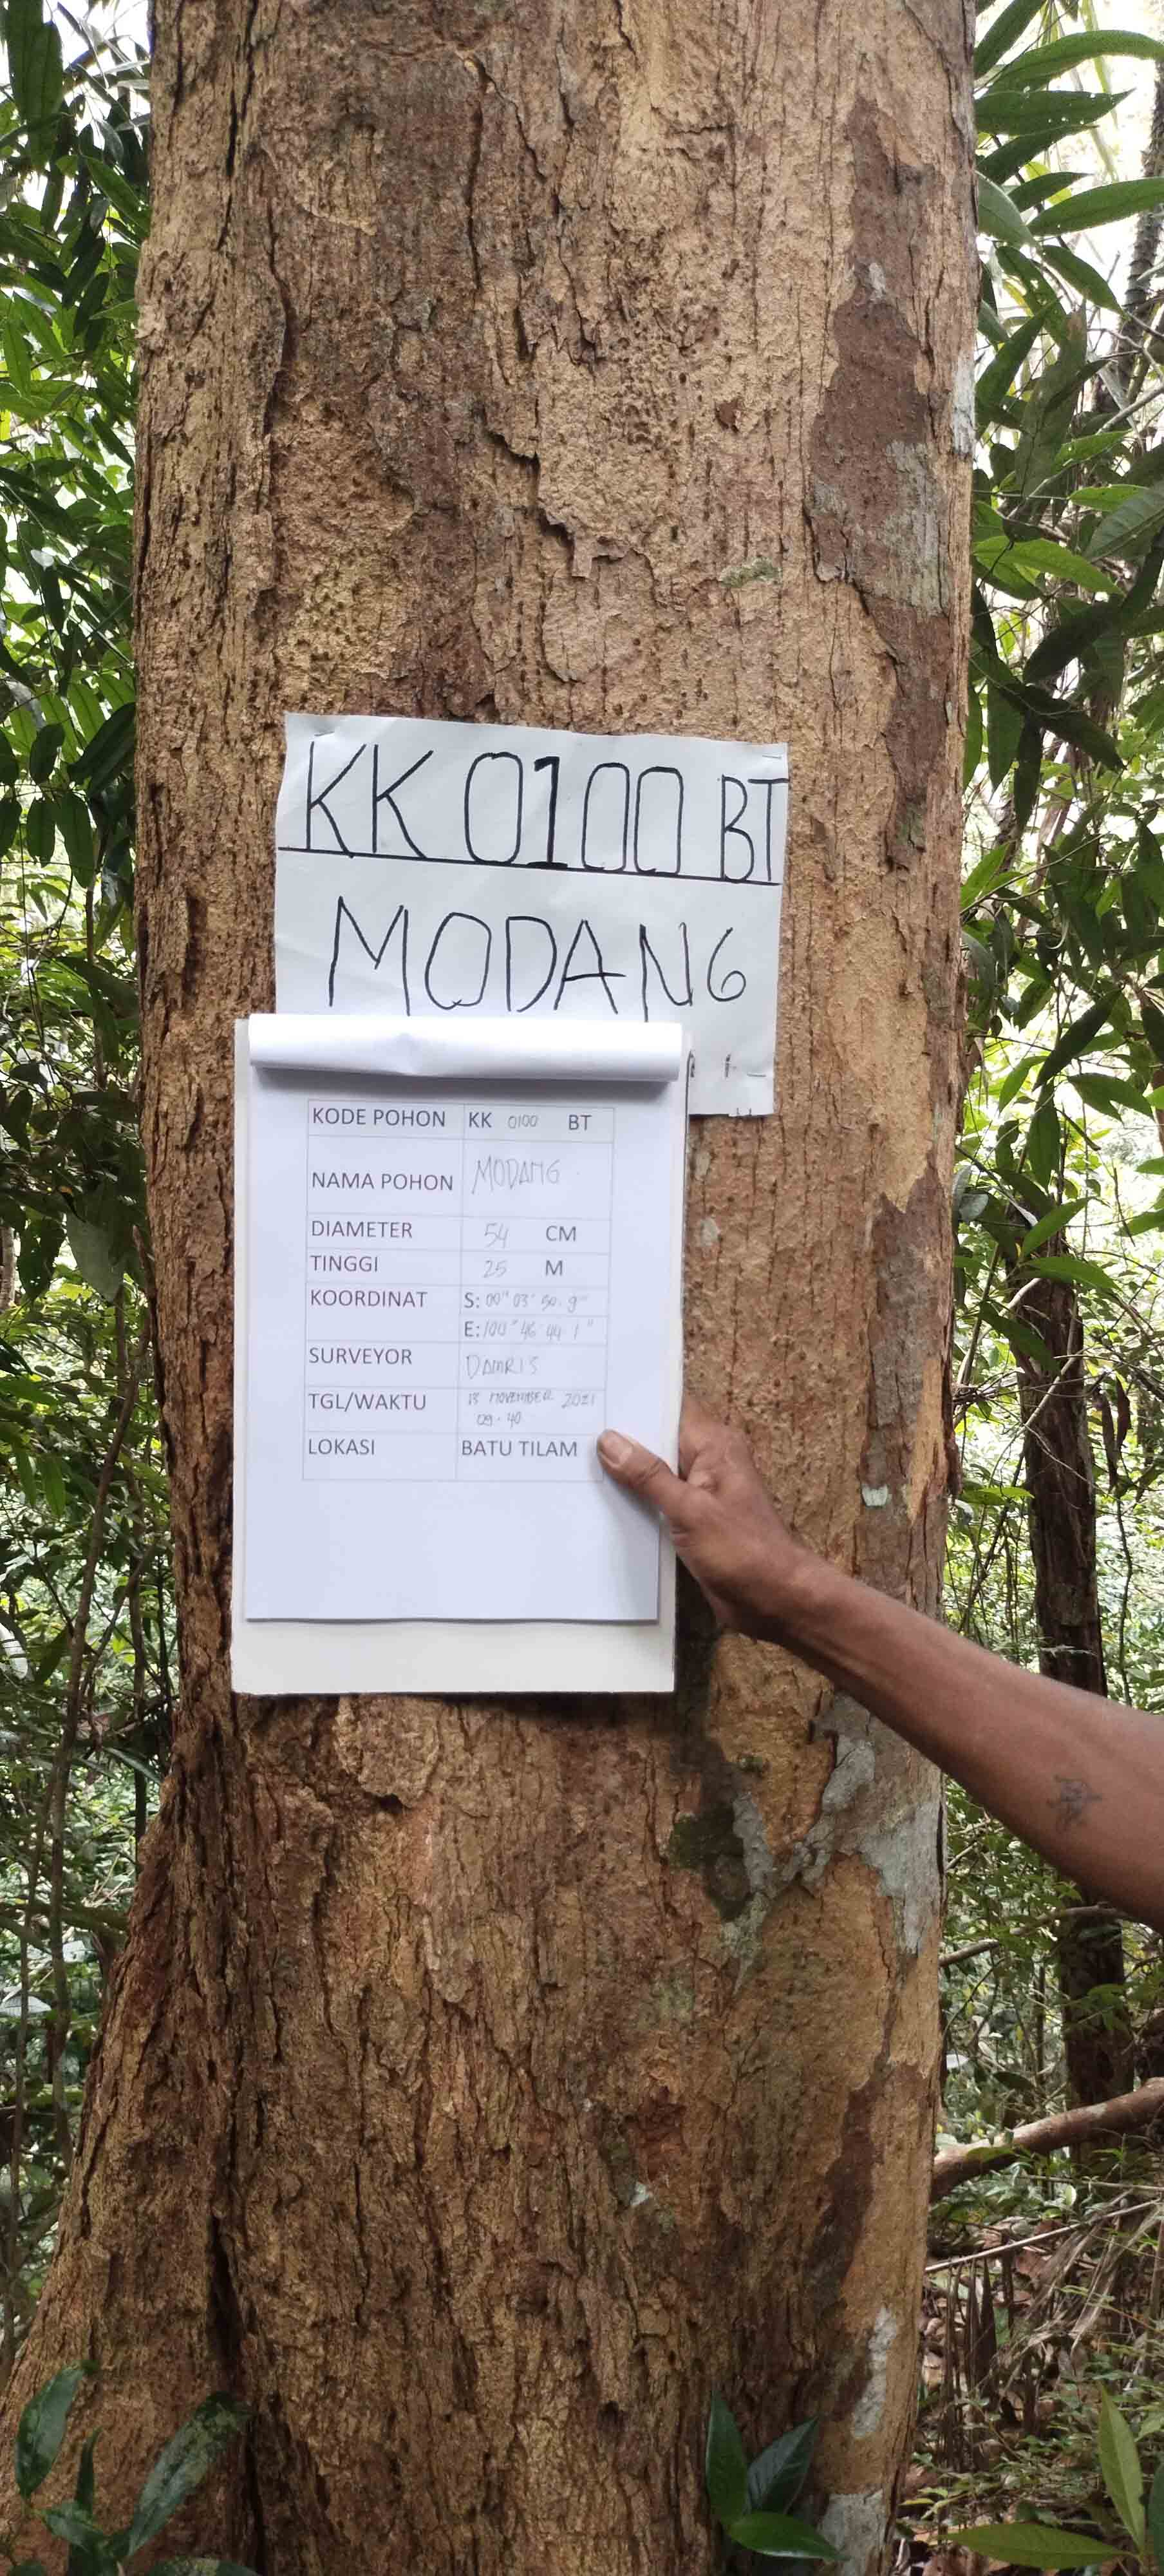 KK 0100 BT
MODANG
KODE POHON KK 0100 BT
NAMA POHON MODANG
DIAMETER 54 CM
TINGGI 25 M
KOORDINAT S: 00° 03' 50.9"
E: 100° 46' 44.1"
SURVEYOR DAMRIS
TGL/WAKTU 13 NOVEMBER 2021
09.40
LOKASI BATU TILAM